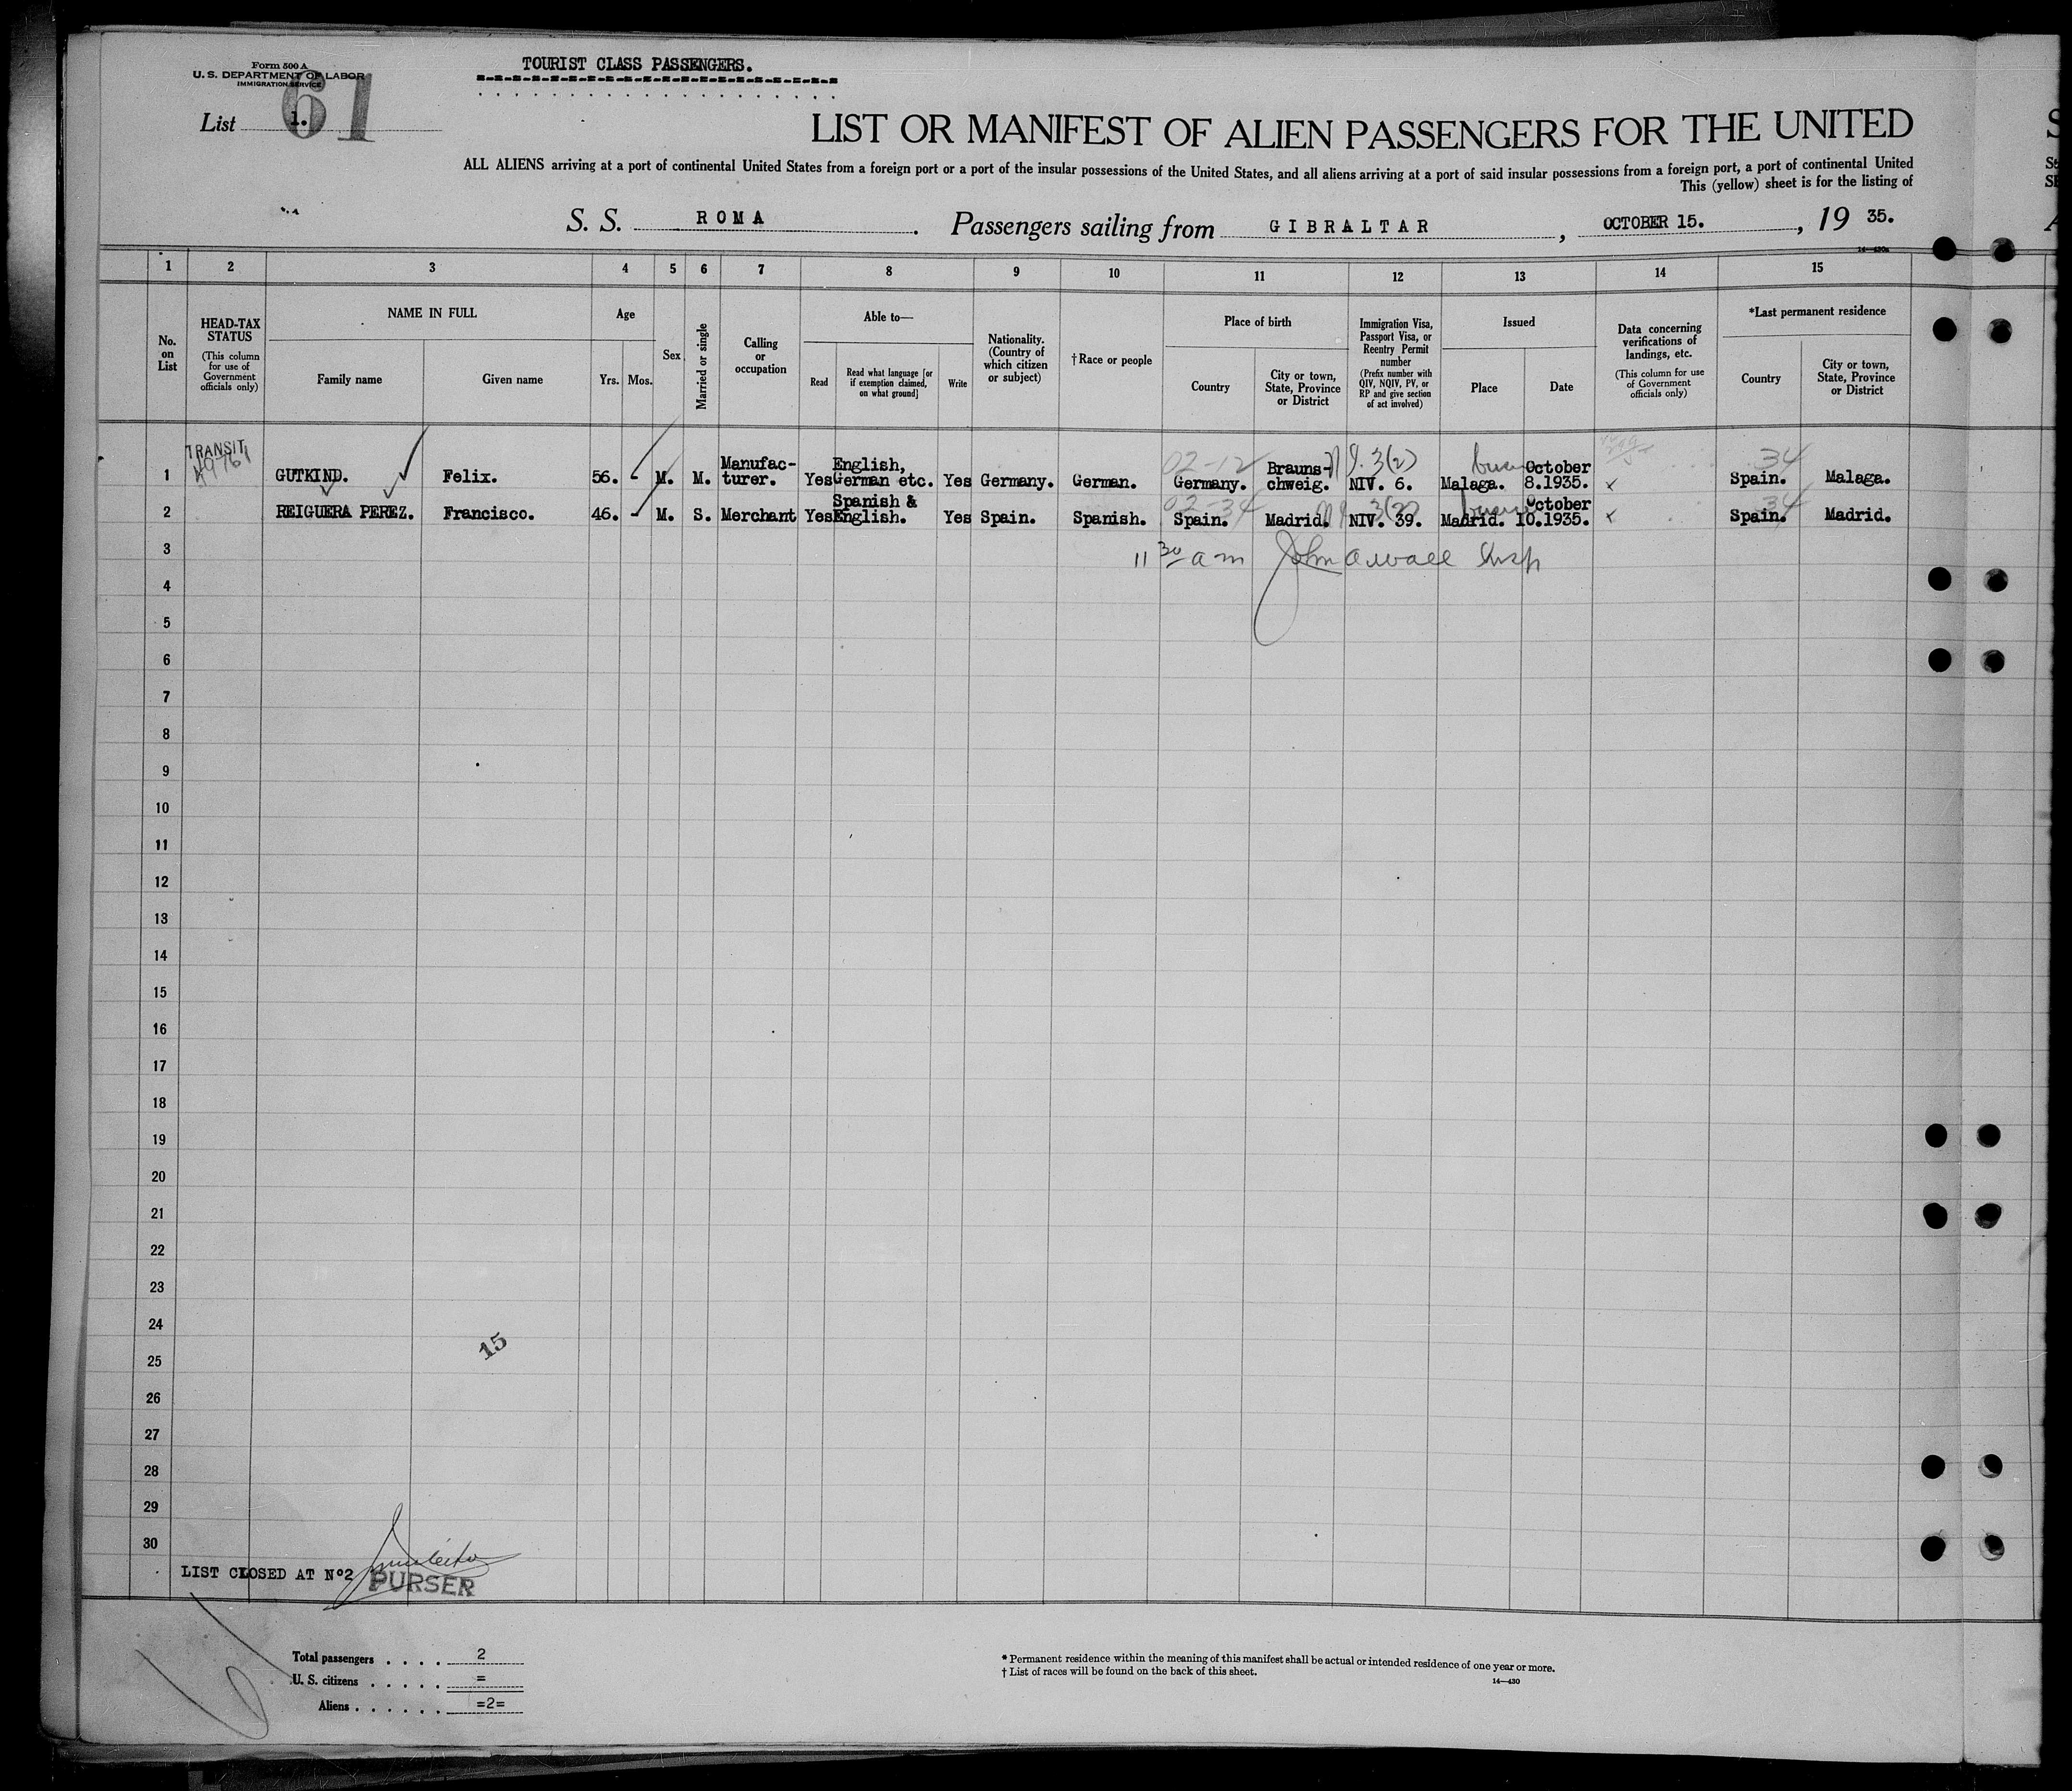 Form 500 A
U. S. DEPARTMENT OF LABOR
IMMIGRATION SERVICE
TOURIST CLASS PASSENGERS.
List 1.
61
LIST OR MANIFEST OF ALIEN PASSENGERS FOR THE UNITED
ALL ALIENS arriving at a port of continental United States from a foreign port or a port of the insular possessions of the United States, and all aliens arriving at a port of said insular possessions from a foreign port, a port of continental United
This (yellow) sheet is for the listing of
S. S. ROMA. Passengers sailing from GIBRALTAR, OCTOBER 15., 19 35.
14—430a
1 2 3 4 5 6 7 8 9 10 11 12 13 14 15
No. on List
HEAD-TAX STATUS (This column for use of Government officials only)
NAME IN FULL
Family name
Given name
Age
Yrs. Mos.
Sex
Married or single
Calling or occupation
Able to—
Read
Read what language [or if exemption claimed, on what ground]
Write
Nationality. (Country of which citizen or subject)
† Race or people
Place of birth
Country
City or town, State, Province or District
Immigration Visa, Passport Visa, or Reentry Permit number (Prefix number with QIV, NQIV, PV, or RP and give section of act involved)
Issued
Place
Date
Data concerning verifications of landings, etc. (This column for use of Government officials only)
*Last permanent residence
Country
City or town, State, Province or District
TRANSIT
02-12 3(2) 34
1 GUTKIND. Felix. 56. - M. M. Manufac-turer. Yes English, German etc. Yes Germany. German. Germany. Brauns-chweig. NIV. 6. Malaga. October 8.1935. x Spain. Malaga.
02-34 3(2) 34
2 REIGUERA PEREZ. Francisco. 46. - M. S. Merchant Yes Spanish & English. Yes Spain. Spanish. Spain. Madrid. NIV. 39. Madrid. October 10.1935. x Spain. Madrid.
3 11 30 a m John A Wall Insp
4
5
6
7
8
9
10
11
12
13
14
15
16
17
18
19
20
21
22
23
24
15
25
26
27
28
29
30
LIST CLOSED AT Nº2
PURSER
61
Total passengers . . . . 2
U. S. citizens . . . . . =
Aliens . . . . . . =2=
* Permanent residence within the meaning of this manifest shall be actual or intended residence of one year or more.
† List of races will be found on the back of this sheet.
14—430